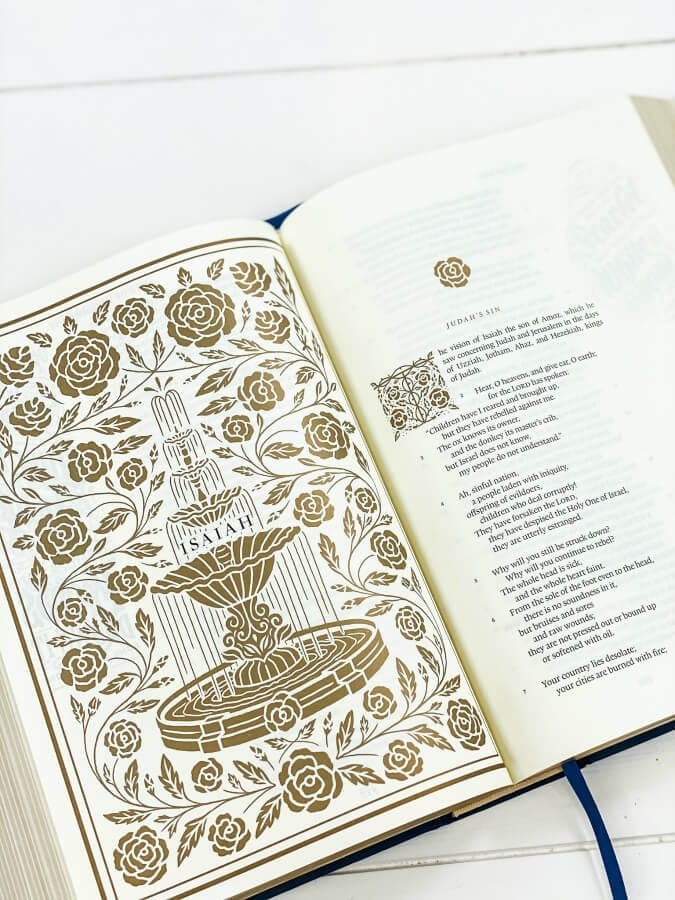 ISAIAH
JUDAH'S SIN
he vision of Isaiah the son of Amoz, which he
saw concerning Judah and Jerusalem in the days
of Uzziah, Jotham, Ahaz, and Hezekiah, kings
of Judah.
2 Hear, O heavens, and give ear, O earth;
for the LORD has spoken:
"Children have I reared and brought up,
but they have rebelled against me.
3 The ox knows its owner,
and the donkey its master's crib,
but Israel does not know,
my people do not understand."
4 Ah, sinful nation,
a people laden with iniquity,
offspring of evildoers,
children who deal corruptly!
They have forsaken the LORD,
they have despised the Holy One of Israel,
they are utterly estranged.
5 Why will you still be struck down?
Why will you continue to rebel?
The whole head is sick,
and the whole heart faint.
6 From the sole of the foot even to the head,
there is no soundness in it,
but bruises and sores
and raw wounds;
they are not pressed out or bound up
or softened with oil.
7 Your country lies desolate;
your cities are burned with fire;